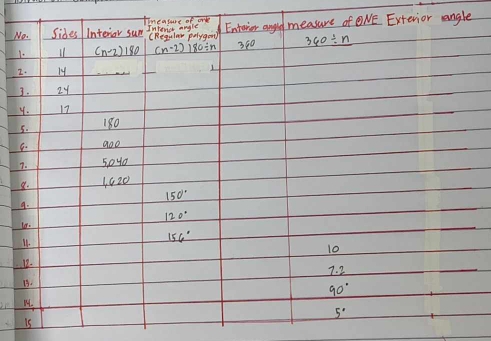 No. Sides Interior sum measure of one Interior angle (Regular polygon) Exterior angle measure of ONE Exterior angle
1. 11 (n-2)180 (n-2)180÷n 360 360÷n
2. 14
3. 24
4. 17
5. 180
6. 900
7. 5,040
8. 1,620
9. 150°
10. 120°
11. 156°
12. 10
13. 7.2
14. 90°
15 5°